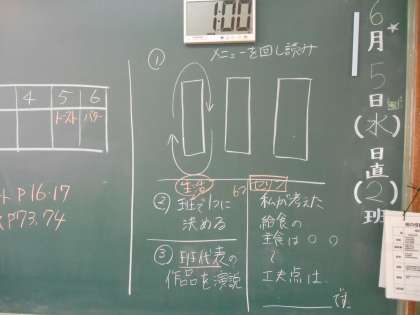 1:00
① メニューを回し読み
4 5 6
トースト バター
P16.17
P73.74
生活
② 班で1つに
決める
③ 班代表の
作品を演説
私が考えた
給食の
主食は○○
〜
工夫点は
です。
6月5日(水)日直(2)班